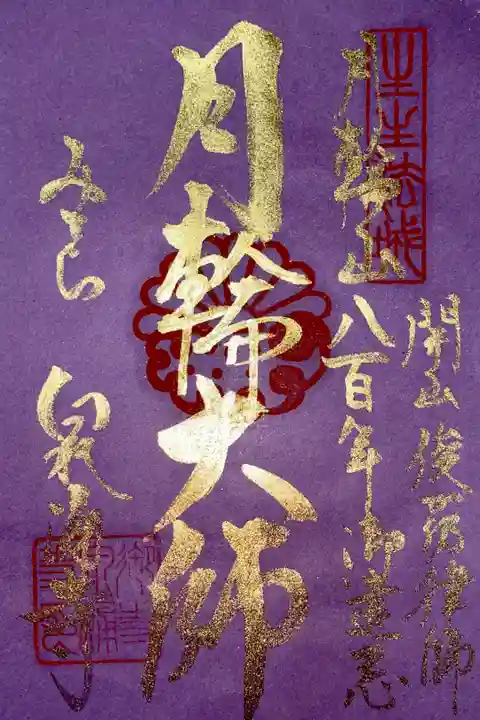 月輪山
開山俊芿律師
八百年御遠忌
月輪大師
みてら
泉涌寺